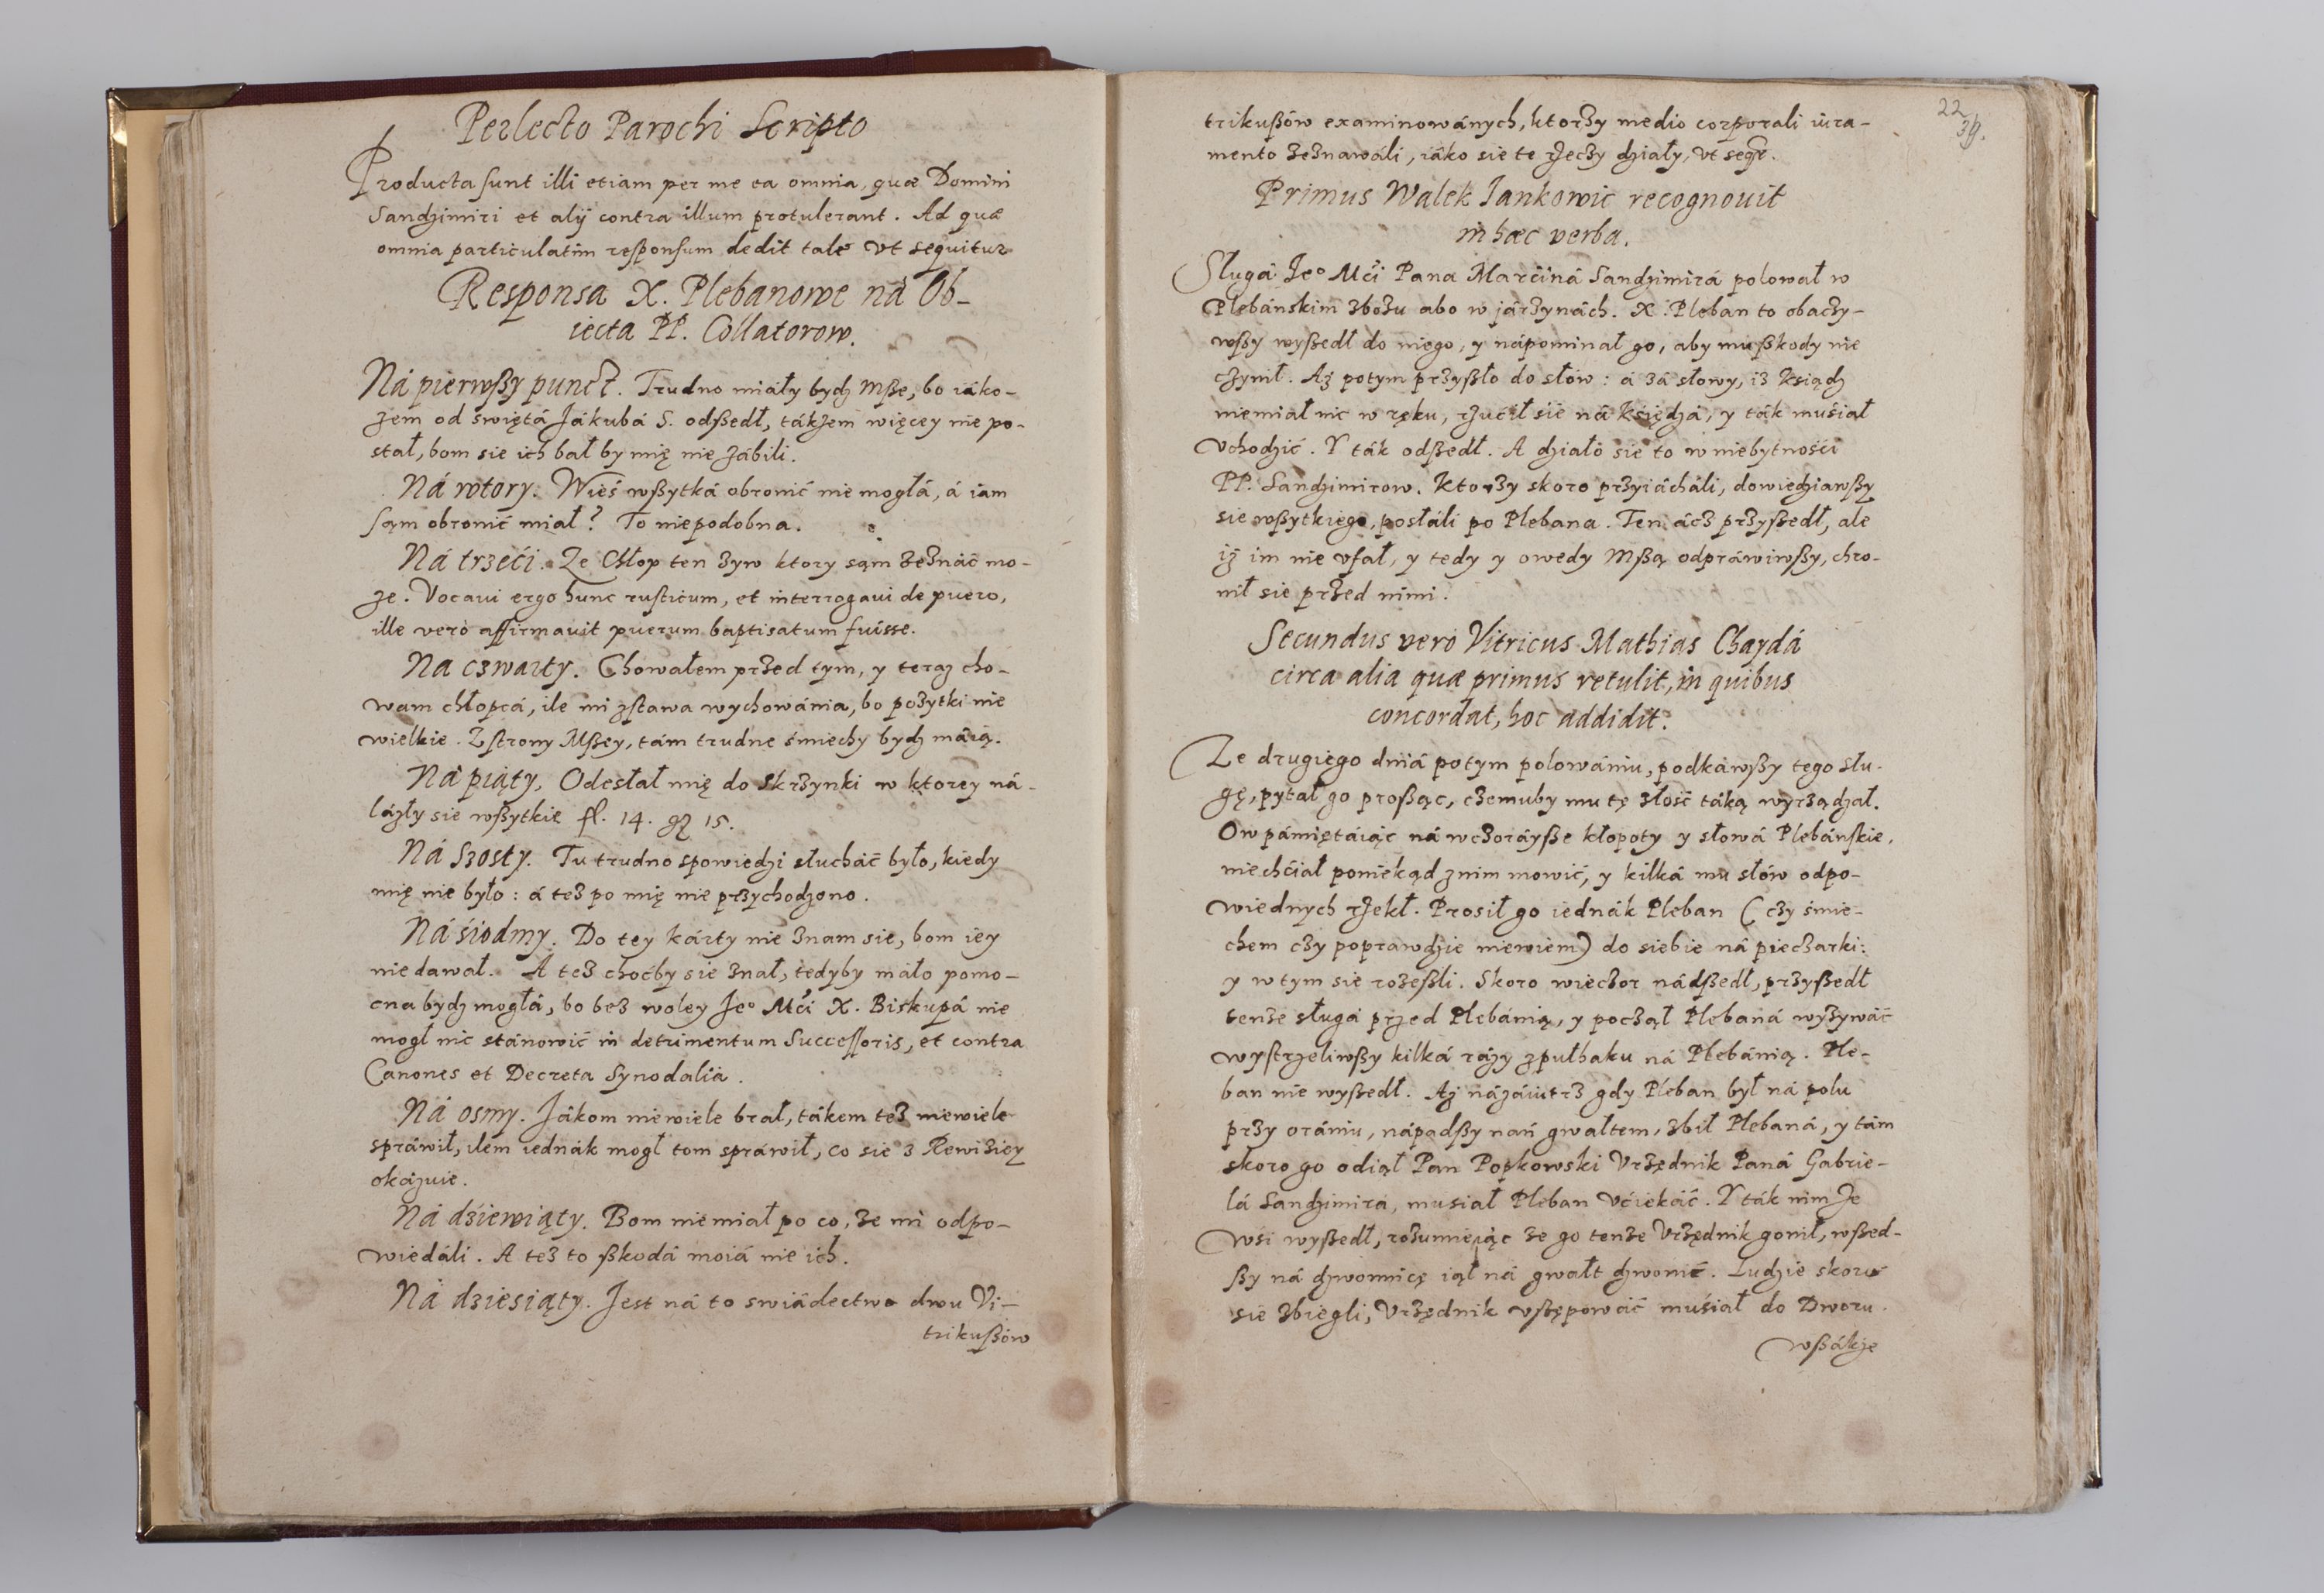 Perlecto Parochi Scripto
Producta sunt illi etiam per me ea omnia, quæ Domini
Sandzimiri et alij contra illum protulerant. Ad quæ
omnia particulatim responsum dedit tale vt sequitur
Responsa X. Plebanowe ná Ob-
iecta PP. Collatorow.
Ná pierwßy punct. Trudno miáły bydz Mße, bo iáko-
zem od swiętá Jákubá S. odßedł, tákzem więcey nie po-
stał, bom sie ich bał by mię nie zábili.
Ná wtory. Wieś wßytká obronić nie mogłá, á iam
sąm obronić miał? To niepodobna.
Ná trzeći. Ze Chłop ten zyw ktory sąm zeznáć mo-
ze. Vocaui ergo hunc rusticum, et interrogaui de puero,
ille verò affirmauit puerum baptisatum fuisse.
Na czwarty. Chowałem przed tym, y teraz cho-
wam chłopcá, ile mi zstawa wychowánia, bo pozytki nie
wielkie. Z strony Mßey, tám trudne śmiechy bydz máią.
Ná piąty. Odesłał mię do skrzynki w ktorey ná-
lázły sie wßytkie fl. 14. gz 15.
Ná Szosty. Tu trudno spowiedzi słucháć było, kiedy
mię nie było: á tez po mię nie przychodzono.
Ná śiodmy. Do tey kárty nie znam sie, bom iey
nie dawał. A tez choćby sie znał, tedyby máło pomo-
cna bydz mogłá, bo bez woley Jeo Mći X. Biskupá nie
mogł nic stánowić in detrimentum Successoris, et contra
Canones et Decreta Synodalia.
Ná osmy. Jákom niewiele brał, tákem tez niewiele
spráwił, ilem iednák mogł tom spráwił, co sie z Rewiziey
okázuie.
Ná dźiewiąty. Bom niemiał po co, ze mi odpo-
wiedáli. A tez to ßkodá moiá nie ich.
Ná dziesiąty. Jest ná to swiádectwo dwu Vi-
trikußów
22
39.
trikußów examinowánych, ktorzy medio corporali iura-
mento zeznawáli, iáko sie te rzeczy dziáły, vt seqr.
Primus Walek Jankowic recognouit
in hæc verba.
Sługá Jeo Mći Pana Marćiná Sandzimirá polował w
Plebánskim zbozu abo w járzynách. X. Pleban to obaczy-
wßy wyßedł do niego, y nápominał go, aby mu ßkody nie
czynił. Az potym przyßło do słów: á zá słowy, iz Ksiądz
niemiał nic w ręku, rzućił sie ná Księdzá, y ták muśiał
vchodzić. Y ták odßedł. A działo sie to w niebytnośći
PP. Sandzimirow. Ktorzy skoro przyiácháli, dowiedziawßy
sie wßytkiego, posłáli po Plebana. Ten ácz przyßedł, ale
iz im nie vfał, y tedy y owedy Mßą odpráwiwßy, chro-
nił sie przed nimi.
Secundus vero Vitricus Mathias Chaydá
circa alia quæ primus retulit, in quibus
concordat, hoc addidit.
Ze drugiego dniá potym polowániu, podkáwßy tego słu-
gę, pytał go proßąc, czemuby mu tę złość táką wyrządzał.
Ow pámiętáiąc ná wczoráyße kłopoty y słowá Plebánskie,
niechćiał poniekąd znim mowić, y kilká mu słów odpo-
wiednych rzekł. Prosił go iednák Pleban (czy śmie-
chem czy poprawdzie niewiem) do siebie ná pieczarki:
y w tym sie rozeßli. Skoro wieczor nádßedł, przyßedł
tenze sługá przed Plebánią, y począł Plebaná wyzywáć
wystrzeliwßy kilká rázy zpułhaku ná Plebánią. Ple-
ban nie wyßedł. Az názáiutrz gdy Pleban był ná polu
przy orániu, nápadßy nań gwałtem, zbił Plebaná, y tám
skoro go odiął Pan Popkowski Vrzędnik Paná Gabrie-
lá Sandzimira, musiał Pleban vćiekáć. Y ták nim ze
wśi wyßedł, rozumieiąc ze go tenze Vrzędnik gonił, wßed-
ßy ná dzwonnicę iął ná gwałt dzwonić. Ludzie skoro
sie zbiegli, Vrzędnik vstępowáć muśiał do Dworu.
wßákze